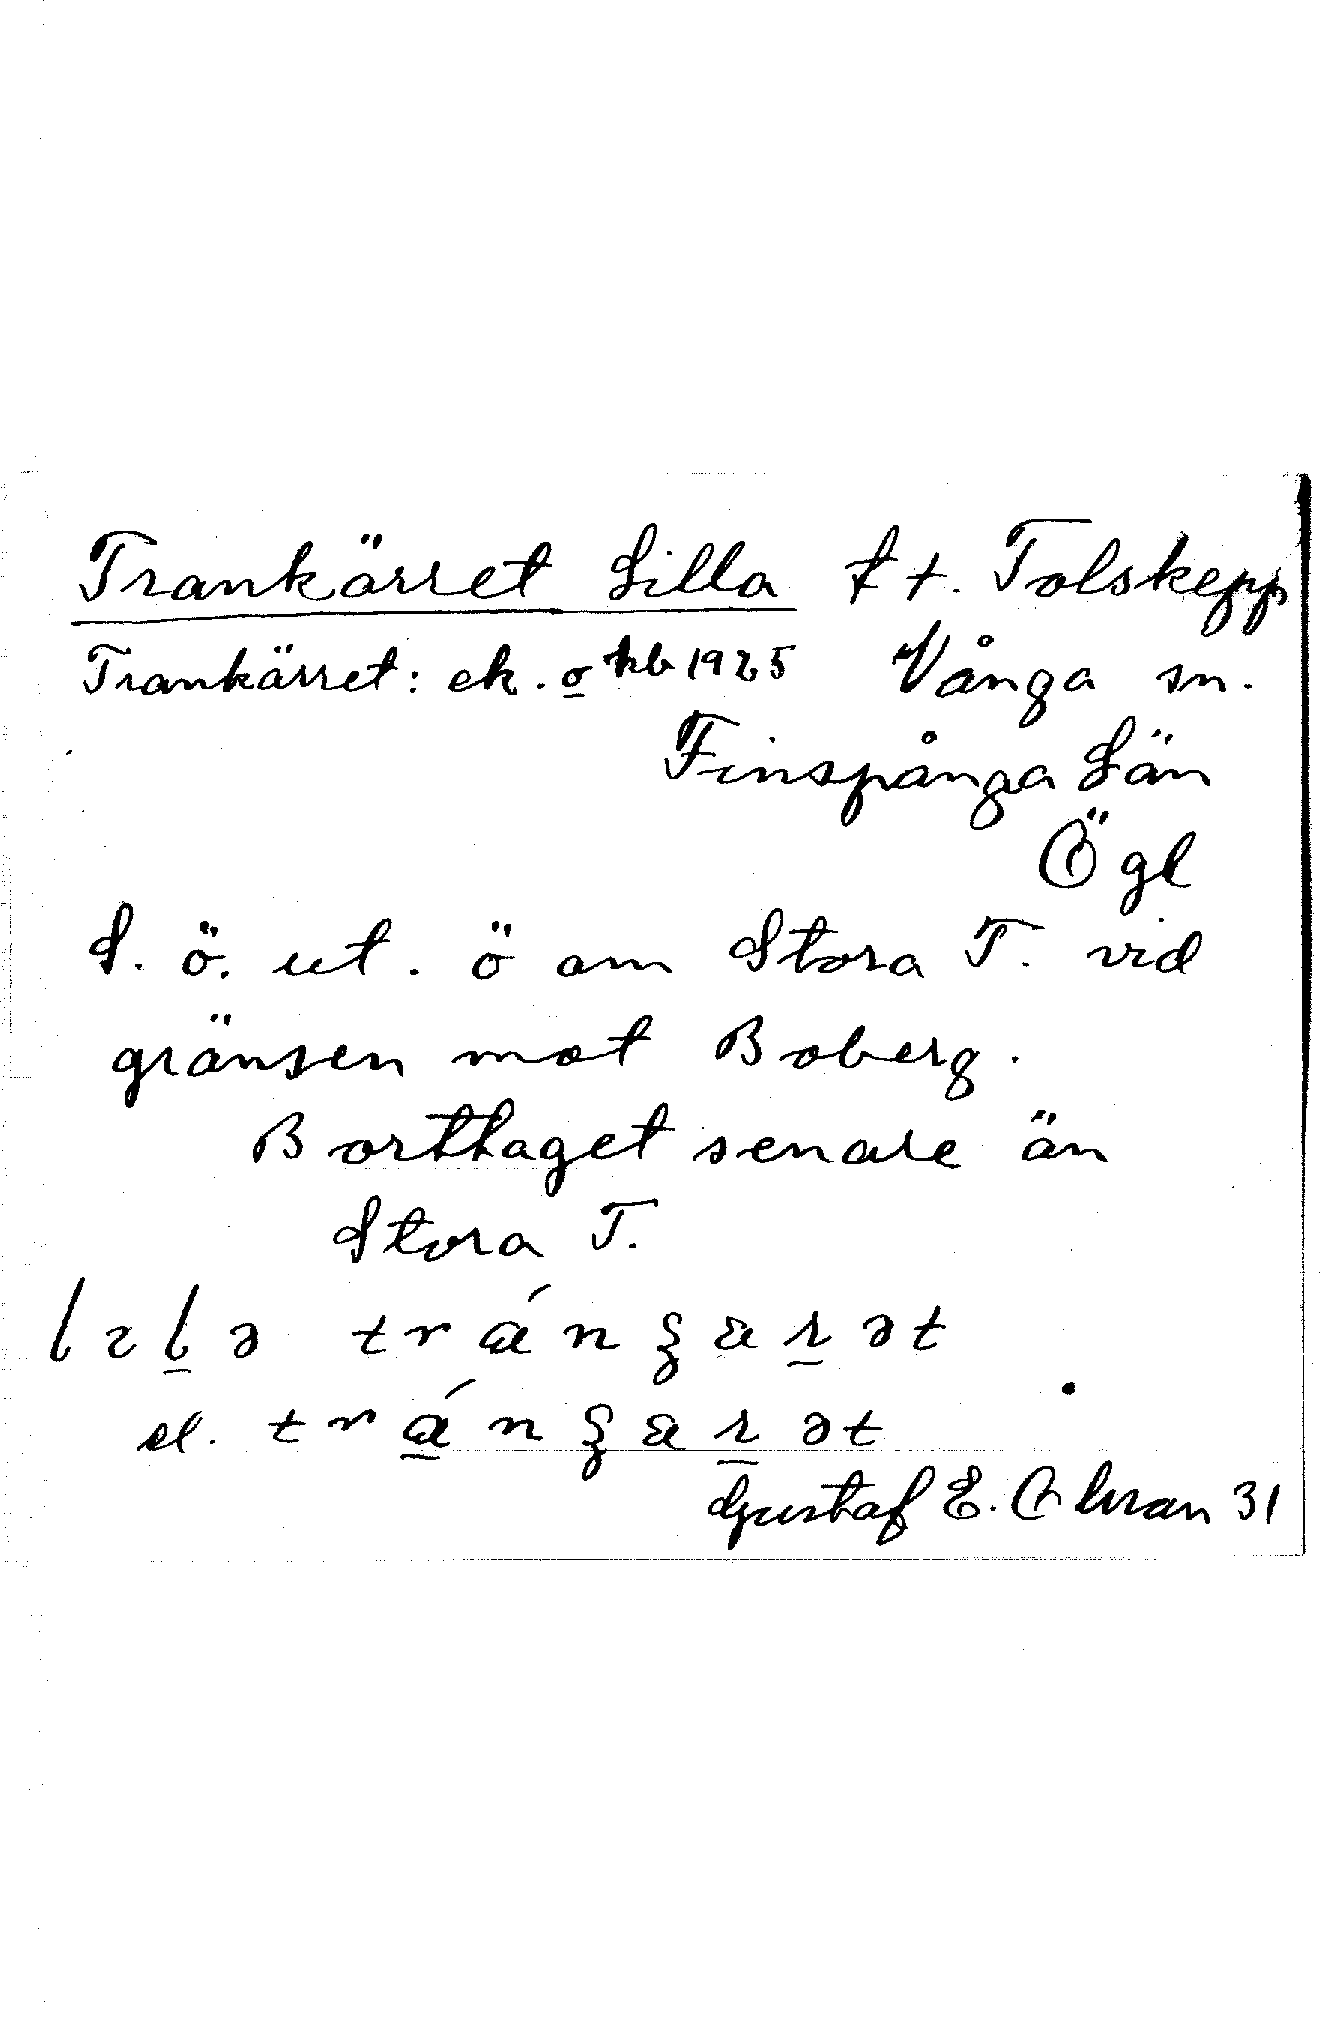 Trankärret Lilla t t. Tolskepp
Trankärret: ek. o hb 1925 Vånga sn.
Finspånga Län
Ögl
S. ö. ut. ö om Stora T. vid
gränsen mot Boberg.
Borttaget senare än
Stora T.
el.
Gustaf E. 31